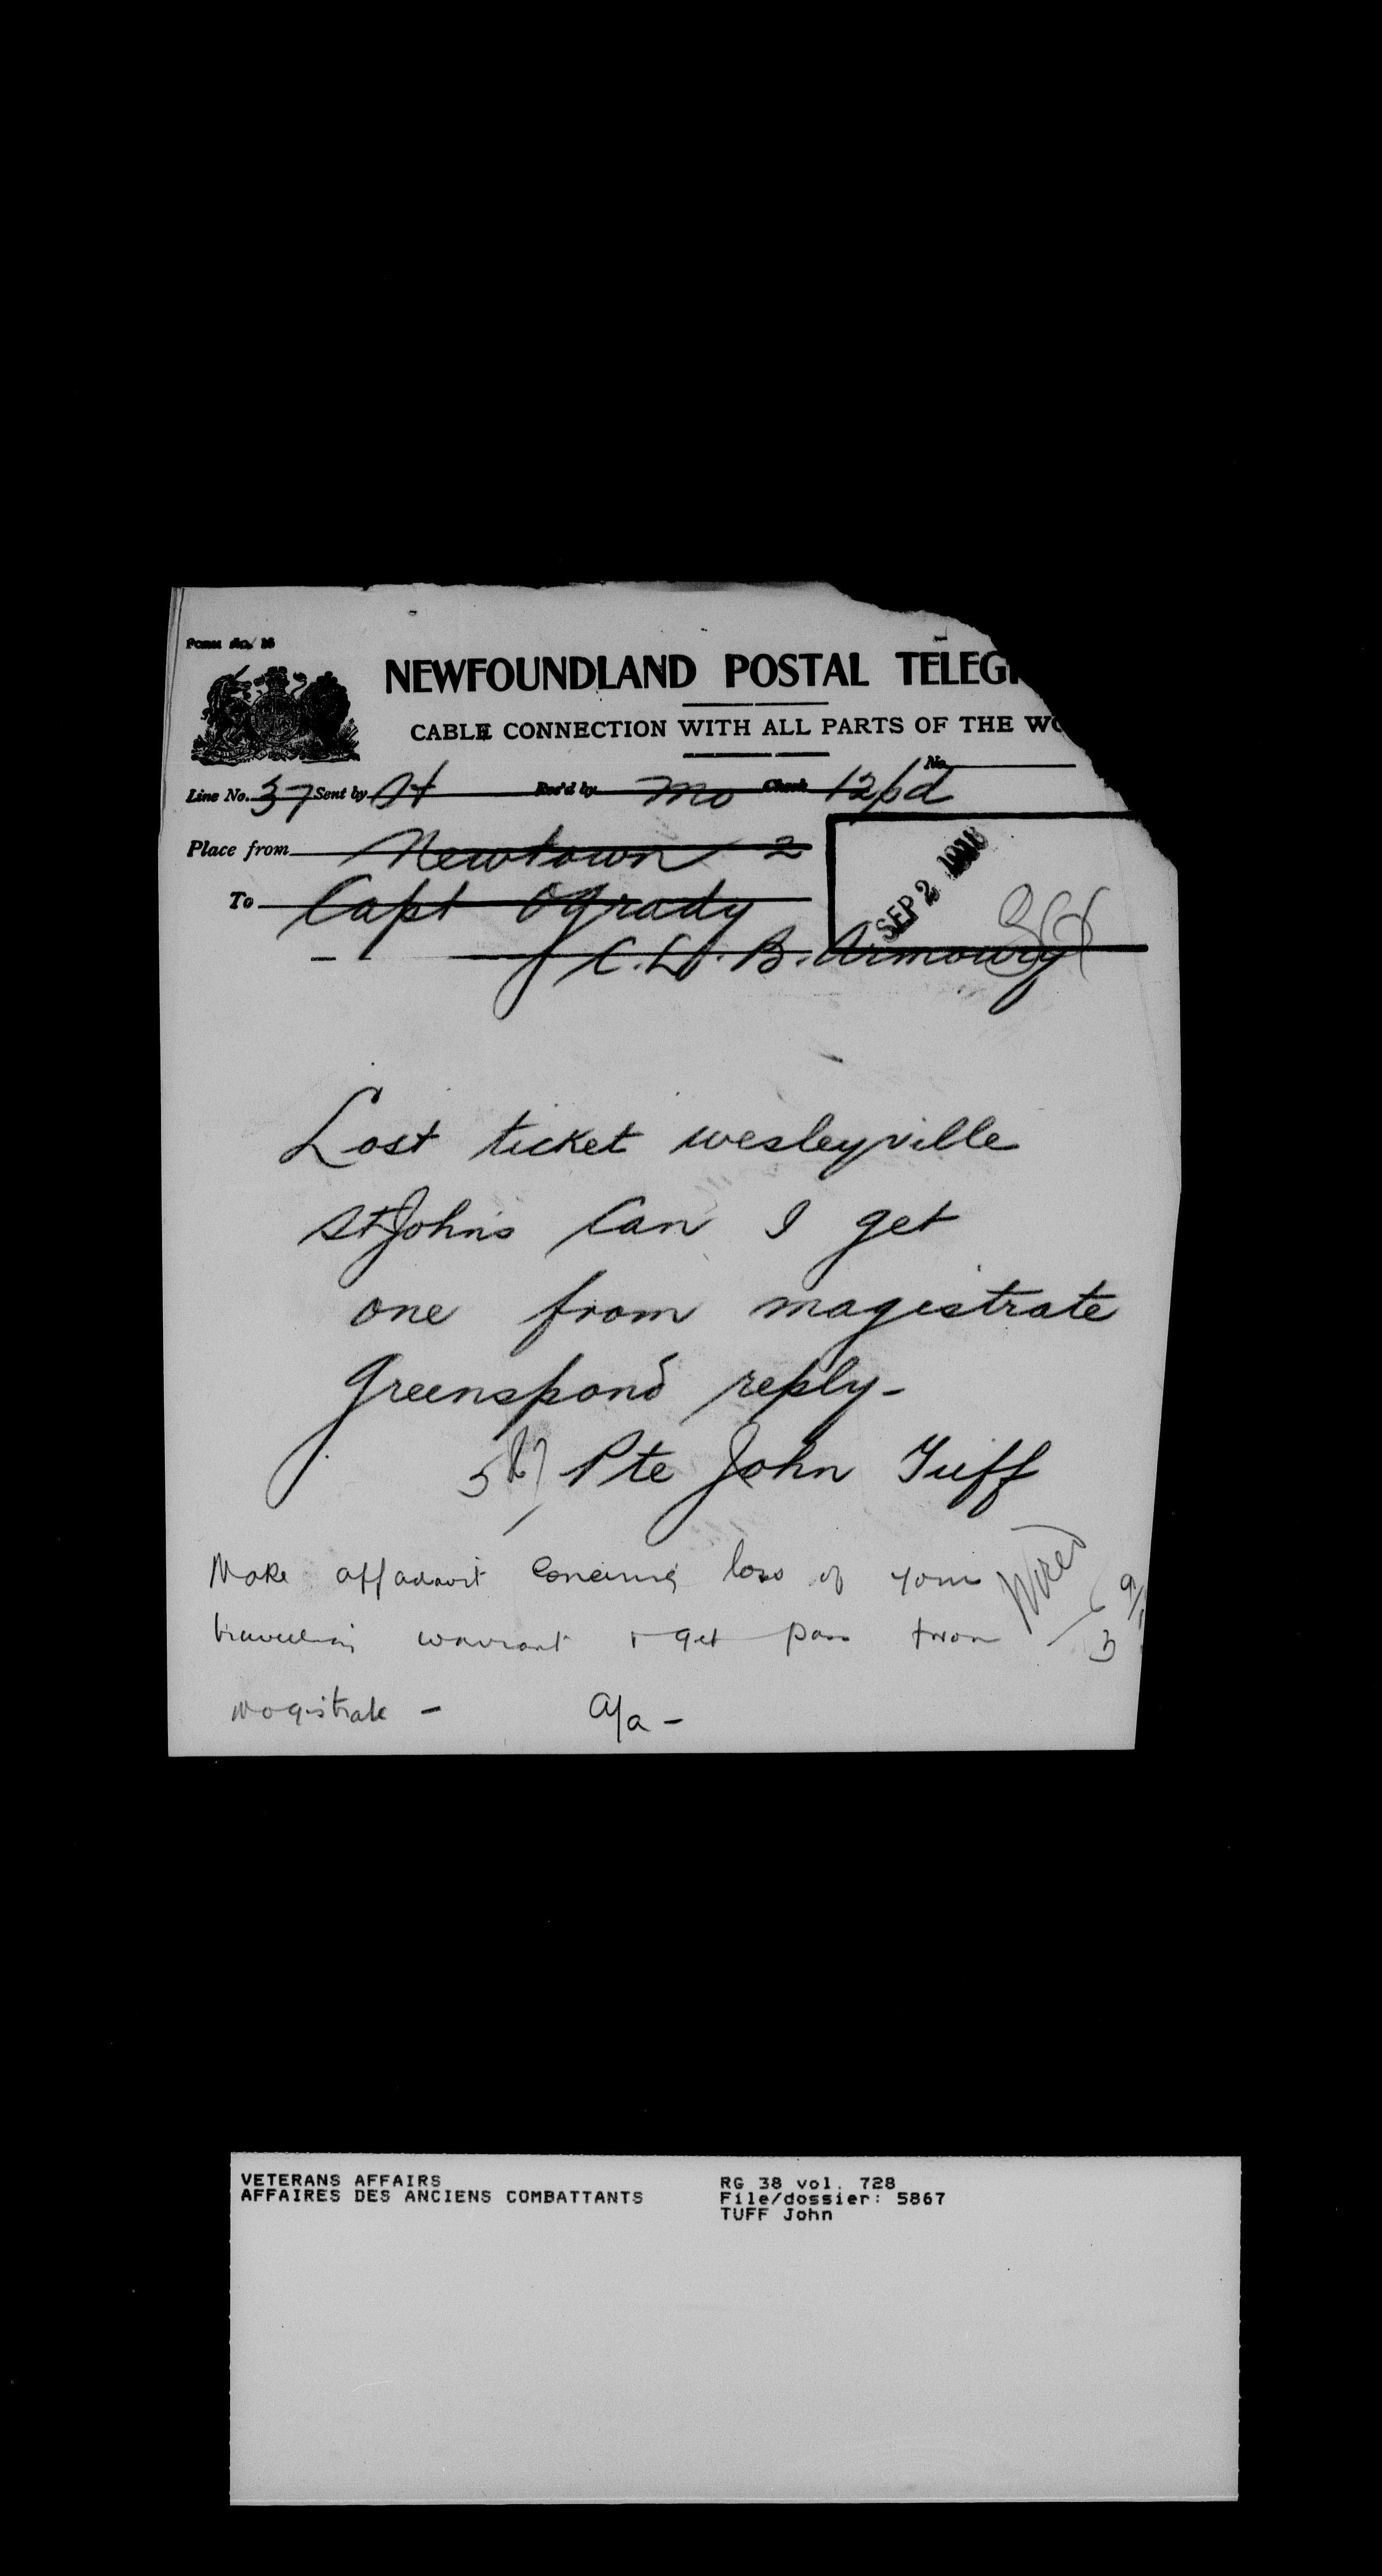 Form No. 16
NEWFOUNDLAND POSTAL TELEG
CABLE CONNECTION WITH ALL PARTS OF THE WO
No.
Line No. 37 Sent by Rec'd by Mo Check 12 pd
Place from Newtown 2
To Capt OGrady
C.L.B. Armoury
SEP 2
Lost ticket wesleyville
St Johns Can I get
one from magistrate
Greenspond reply-
Pte John Tuff
Make affadavit concerning loss of your
travelling warrant & get pass from
Magistrate -
Wired
VETERANS AFFAIRS
AFFAIRES DES ANCIENS COMBATTANTS
RG 38 vol. 728
File/dossier: 5867
TUFF John